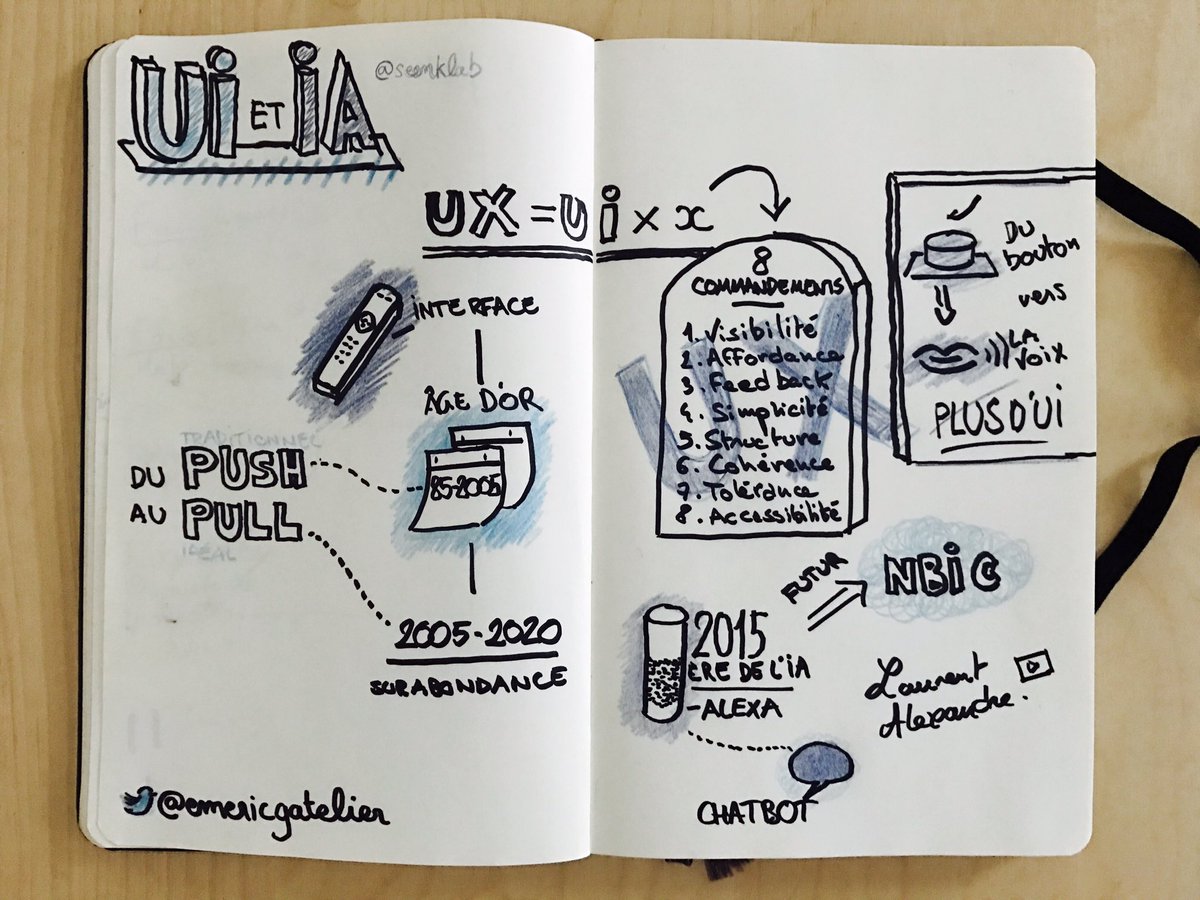 Ui ET iA
@seenklab
UX = Ui x x
iNTERFACE
ÂGE D'OR
85-2005
TRADITIONNEL
DU PUSH
AU PULL
IDEAL
2005-2020
SURABONDANCE
@emericgatelier
8
COMMANDEMENTS
1. Visibilité
2. Affordance
3. Feedback
4. Simplicité
5. Structure
6. Cohérence
7. Tolérance
8. Accessibilité
UX
Du
bouton
vers
LA
VOIX
PLUS D'UI
FUTUR
NBiC
2015
ERE DE L'iA
-ALEXA
CHATBOT
Laurent
Alexandre.